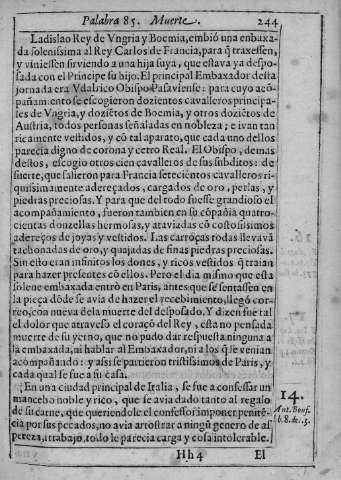 Palabra 85. Muerte. 244
Ladislao Rey de Vngria y Boemia, embió una enbaxa
da solenissima al Rey Carlos de Francia, para q̃ traxessen,
y viniessen sirviendo a una hija suya, que estava ya despo
sada con el Principe su hijo. El principal Embaxador desta
jornada era Vdalrico Obispo Pasaviense: para cuyo acõ
pañamẽto se escogieron dozientos cavalleros principa
les de Vngria, y doziẽtos de Boemia, y otros doziẽtos de
Austria, todos personas señaladas en nobleza; e ivan tan
ricamente vestidos, y cõ tal aparato, que cada uno dellos
parecia digno de corona y cetro Real. El Obispo, demas
destos, escogio otros cien cavalleros de sus subditos: de
suerte, que salieron para Francia setecientos cavalleros ri-
quissimamente adereçados, cargados de oro, perlas, y
piedras preciosas. Y para que del todo fuesse grandioso el
acompañamiento, fueron tambien en su cõpañia quatro-
cientas donzellas hermosas, y ataviadas cõ costosissimos
adereços de joyas y vestidos. Las carroças todas llevavã
tachonadas de oro, y quajadas de finas piedras preciosas.
Sin esto eran infinitos los dones, y ricos vestidos q̃ traian
para hazer presentes cõ ellos. Pero el dia mismo que esta
solene embaxada entrò en Paris, antes que se sentassen en
la pieça dõde se avia de hazer el recebimiento, llegó cor-
reo, con nueva de la muerte del desposado. Y dizen fue tal
el dolor que atravesò el coraçõ del Rey, esta no pensada
muerte de su yerno, que no pudo dar respuesta ninguna a
la embaxada, ni hablar al Embaxador, ni a los q̃ le venian
acompañando: y assi se partieron tristissimos de Paris, y
cada qual se fue a su casa.
En una ciudad principal de Italia, se fue a confessar un
mancebo noble y rico, que se avia dado tanto al regalo
de su carne, que queriendole el confessor imponer penitẽ-
cia por sus pecados, no avia arrostrar a ningũ genero de as
pereza, i trabajo, todo le parecia carga y cosa intolerable.
14.
Ant. Bonf.
Hh4 El